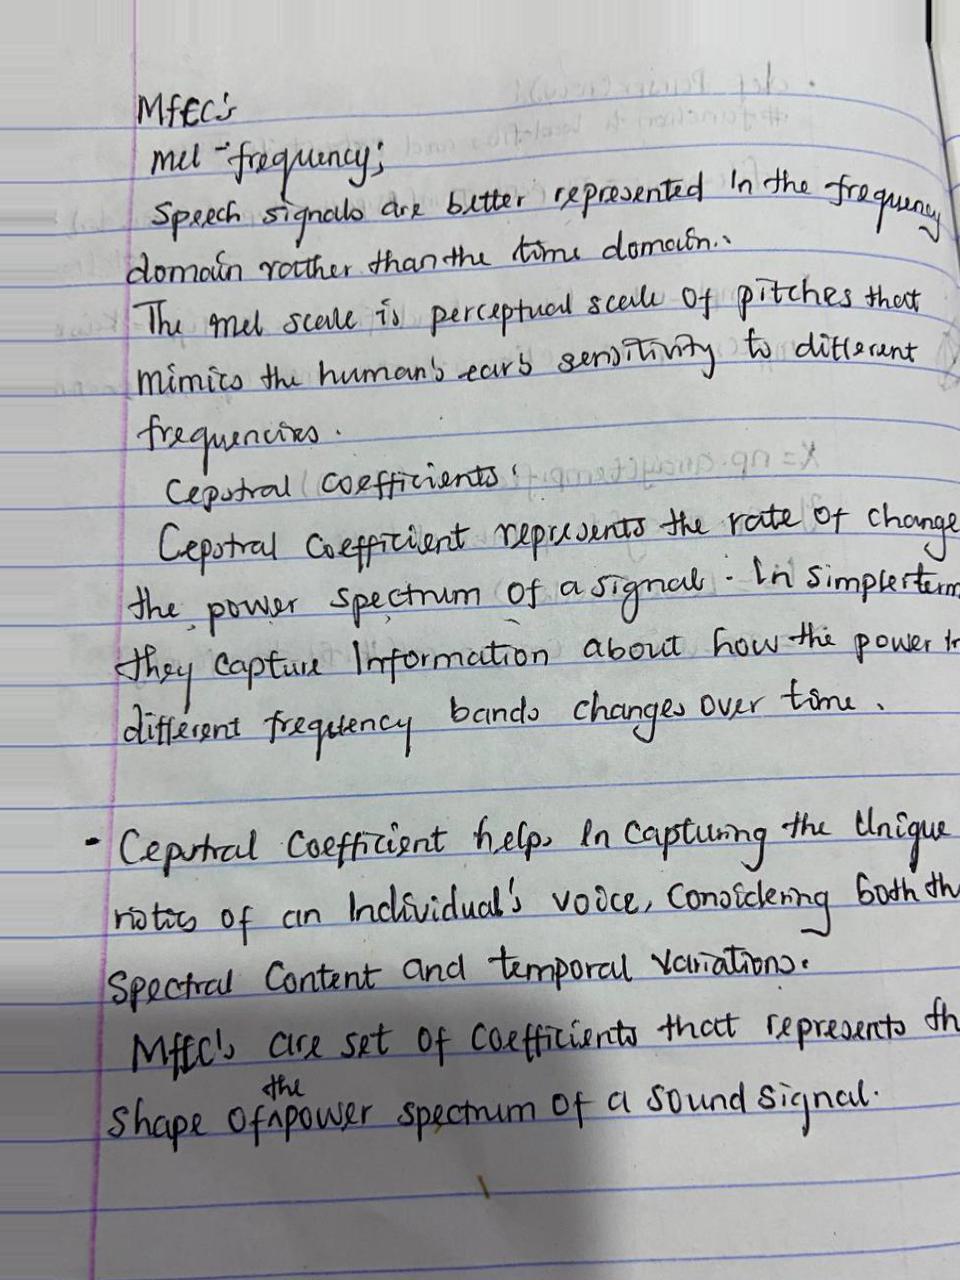 Mfcc's
mel-frequency;
Speech signals are better represented In the frequency
domain rather than the time domain.
The mel scale is perceptual scale of pitches that
mimics the human's ear's sensitivity to different
frequencies.
Cepstral coefficients:
Cepstral Coefficient represents the rate of change
the power spectrum of a signal. In simpler term
they capture Information about how the power In
different frequency bands changes over time.
- Cepstral Coefficient helps In Capturing the Unique
of an Individual's voice, Considering both th
Spectral Content and temporal Variations.
Mfcc's are set of coefficients that represents th
shape of the power spectrum of a sound signal.